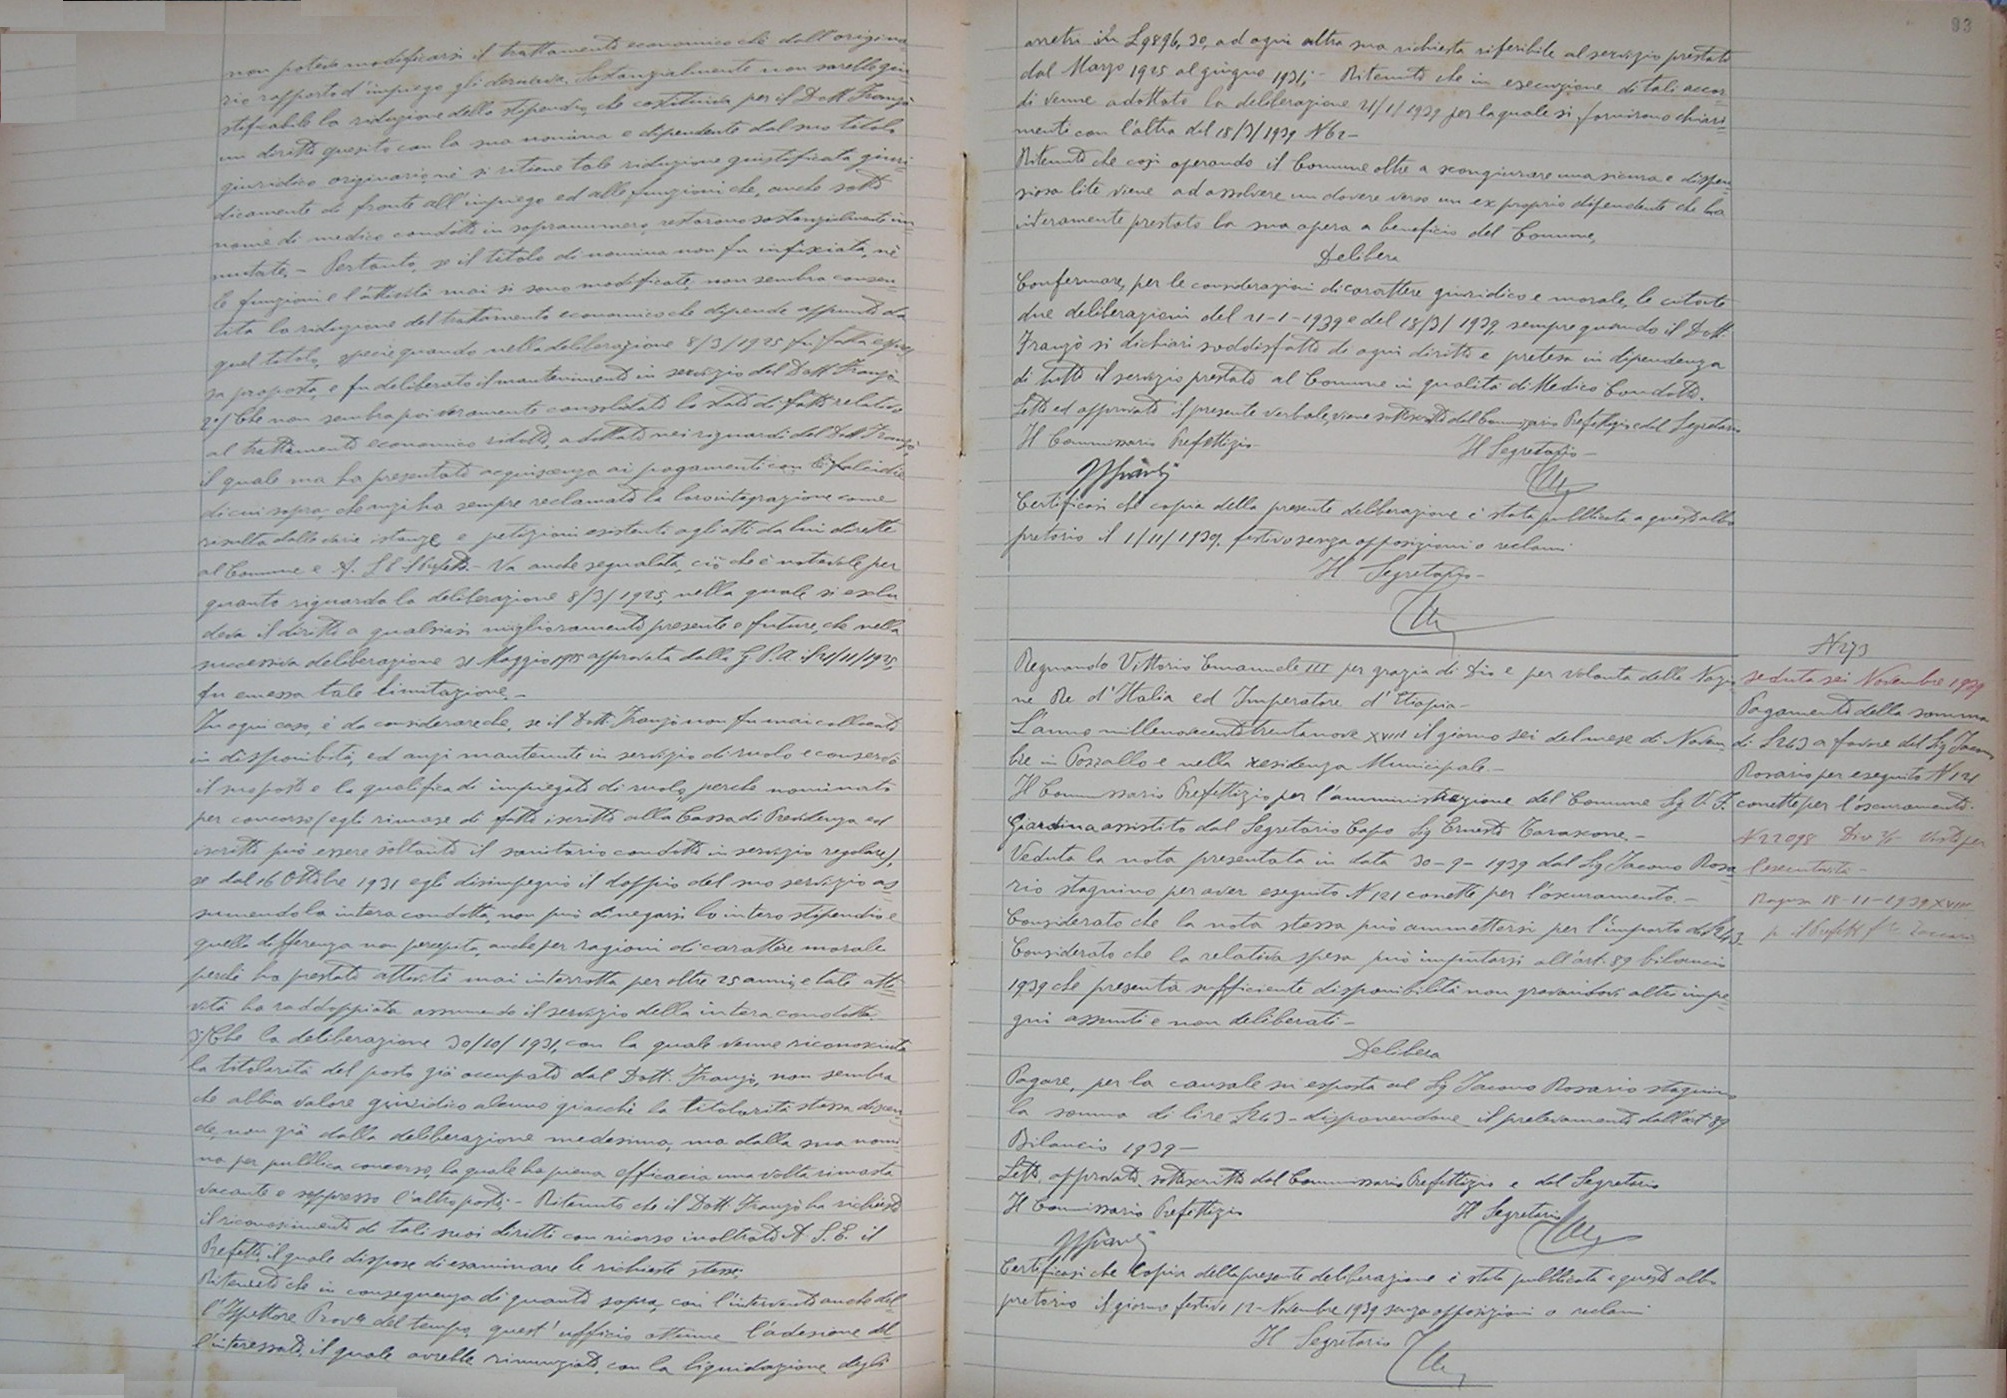 non poteva modificarsi il trattamento economico che dall'origina
rio rapporto d'impiego gli derivava. Sostanzialmente non sarebbe giu
stificabile la riduzione dello stipendio, che costituiva per il Dott. Franzò
un diritto quesito con la sua nomina e dipendente dal suo titolo
giuridico originario, nè si ritiene tale riduzione giustificata giuri-
dicamente di fronte all'impiego ed alle funzioni che, anche sotto
nome di medico condotto in soprannumero restarono sostanzialmente im
mutate. - Pertanto, se il titolo di nomina non fu inficiata, nè
le funzioni e l'attività mai si sono modificate, non sembra consen-
tita la riduzione del trattamento economico che dipende appunto da
quel titolo, specie quando nella deliberazione 8/3/1925 fu fatta espres
sa proposta, e fu deliberato il mantenimento in servizio del Dott Franzò.
2°/ Che non sembra poi veramente consolidato lo stato di fatto relativo
al trattamento economico ridotto, adottato nei riguardi del Dott Franzò,
il quale mai ha presentato acquiscenza ai pagamenti con falcidie
di cui sopra, che anzi ha sempre reclamato la loro integrazione come
risulta dalle varie istanze e petizioni esistenti agli atti da lui dirette
al Comune e A. S. E. il Prefetto. - Va anche segnalata, ciò che è notevole per
quanto riguarda la deliberazione 8/3/1925, nella quale si esclu
deva il diritto a qualsiasi miglioramento presente e future, che nella
successiva deliberazione 31 Maggio 1925 approvata dalla G.P.A. il 21/11/1925,
fu emessa tale limitazione. -
In ogni caso, è da considerare che, se il Dott. Franzò non fu mai collocato
in disponibilità, ed anzi mantenuto in servizio di ruolo e conservò
il suo posto e la qualifica di impiegato di ruolo, perchè nominato
per concorso (egli rimase di fatto iscritto alla Cassa di Previdenza ed
iscritto può essere soltanto il sanitario condotto in servizio regolare),
se dal 16 Ottobre 1931 egli disimpegnò il doppio del suo servizio as
sumendo la intera condotta, non può dinegarsi lo intero stipendio e
quella differenza non percepita, anche per ragioni di carattere morale
perchè ha prestato attività mai interrotta per oltre 25 anni, e tale atti
vità ha raddoppiata assumendo il servizio della intera condotta.
3°/ Che la deliberazione 30/10/1931, con la quale venne riconosciuta
la titolarità del posto già occupato dal Dott. Franzò, non sembra
che abbia valore giuridico alcuno giacchè la titolarità stessa discen
de, non già dalla deliberazione medesima, ma dalla sua nomi
na per pubblico concorso, la quale ha piena efficacia una volta rimasto
vacante e soppresso l'altro posto. - Ritenuto che il Dott. Franzò ha richiesto
il riconoscimento di tali suoi diritti con ricorso inoltrato A S.E. il
Prefetto, il quale dispose di esaminare le richieste stesse;
Ritenuto che in conseguenza di quanto sopra, con l'intervento anche del-
l'Ispettore Prov.le del tempo, quest'ufficio ottenne l'adesione del-
l'interessato, il quale avrebbe rinunziato, con la liquidazione degli
93
arretrati in L 9896,30, ad ogni altra sua richiesta riferibile al servizio prestato
dal Marzo 1925 al giugno 1931; - Ritenuto che in esecuzione di tali accor-
di venne adottata la deliberazione 21/1/1939 per la quale si fornirono chiari-
menti con l'altra del 18/3/1939 N 62 -
Ritenuto che così operando il Comune oltre a scongiurare una sicura e dispen-
diosa lite viene ad assolvere un dovere verso un ex proprio dipendente che ha
interamente prestato la sua opera a beneficio del Comune,
Delibera
Confermare, per le considerazioni di carattere giuridico e morale, le citate
due deliberazioni del 21-1-1939 e del 18/3/1939, sempre quando il Dott.
Franzò si dichiari soddisfatto di ogni diritto e pretesa in dipendenza
di tutto il servizio prestato al Comune in qualità di Medico Condotto.
Letto ed approvato il presente verbale, viene sottoscritto dal Commissario Prefettizio e dal Segretario
Il Commissario Prefettizio - Il Segretario -
Certificasi che copia della presente deliberazione è stata pubblicata a quest'albo
pretorio il 1/11/1939, festivo senza opposizioni o reclami
Il Segretario -
N 273
seduta sei Novembre 1939
Pagamento della somma
di L 243 a favore del Sig Iacono
Rosario per eseguito N 121
conette per l'oscuramento.
N 22098 Div 2/1 Visto per
l'esecutività -
Ragusa 18-11-1939 XVIII
p. il Prefetto
Regnando Vittorio Emanuele III per grazia di Dio e per volontà della Nazio
ne Re d'Italia ed Imperatore d'Etiopia -
L'anno millenovecentotrentanove XVIII il giorno sei del mese di Novem
bre in Pozzallo e nella residenza Municipale. -
Il Commissario Prefettizio per l'amministrazione del Comune Sig V. F.
Giardina assistito dal Segretario Capo Sig Ernesto Tarascone. -
Veduta la nota presentata in data 30-9-1939 dal Sig Iacono Rosa
rio stagnino per aver eseguito N 121 conette per l'oscuramento. -
Considerato che la nota stessa può ammettersi per l'importo di L 243
Considerato che la relativa spesa può imputarsi all'art. 89 bilancio
1939 che presenta sufficiente disponibilità non gravandovi altri impe
gni assunti e non deliberati -
Delibera
Pagare, per la causale su esposta al Sig Iacono Rosario stagnino
la somma di lire L 243 - disponendone il prelevamento dall'art 89
Bilancio 1939 -
Letto, approvato, sottoscritto dal Commissario Prefettizio e dal Segretario
Il Commissario Prefettizio Il Segretario
Certificasi che copia della presente deliberazione è stata pubblicata a quest'albo
pretorio il giorno festivo 12 - Novembre 1939 senza opposizioni o reclami
Il Segretario